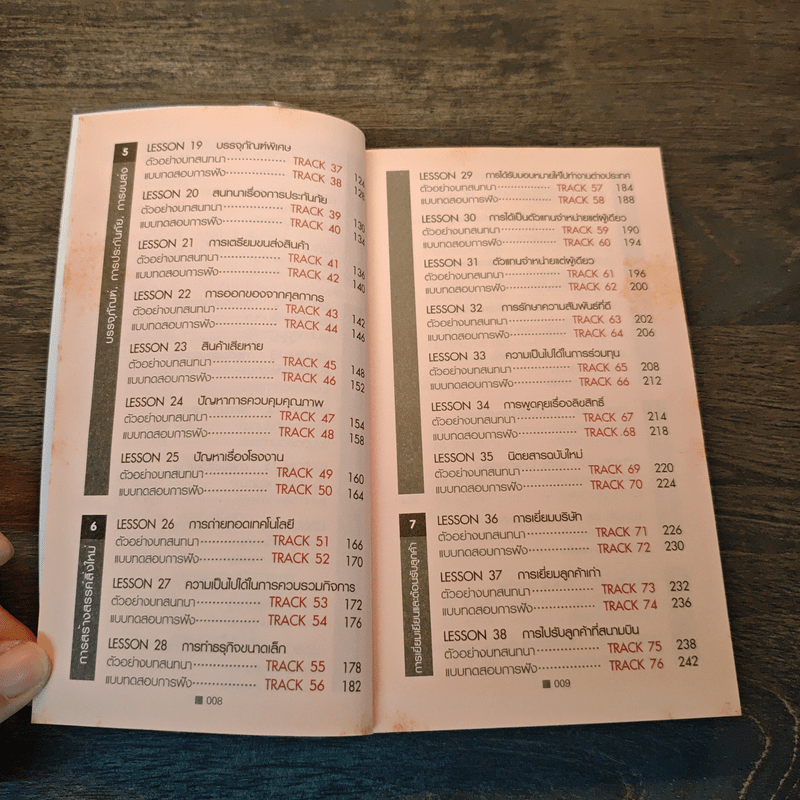 5
บรรจุภัณฑ์, การประกันภัย, การขนส่ง
LESSON 19 บรรจุภัณฑ์พิเศษ
ตัวอย่างบทสนทนา TRACK 37 124
แบบทดสอบการฟัง TRACK 38 128
LESSON 20 สนทนาเรื่องการประกันภัย
ตัวอย่างบทสนทนา TRACK 39 130
แบบทดสอบการฟัง TRACK 40 134
LESSON 21 การเตรียมขนส่งสินค้า
ตัวอย่างบทสนทนา TRACK 41 136
แบบทดสอบการฟัง TRACK 42 140
LESSON 22 การออกของจากศุลกากร
ตัวอย่างบทสนทนา TRACK 43 142
แบบทดสอบการฟัง TRACK 44 146
LESSON 23 สินค้าเสียหาย
ตัวอย่างบทสนทนา TRACK 45 148
แบบทดสอบการฟัง TRACK 46 152
LESSON 24 ปัญหาการควบคุมคุณภาพ
ตัวอย่างบทสนทนา TRACK 47 154
แบบทดสอบการฟัง TRACK 48 158
LESSON 25 ปัญหาเรื่องโรงงาน
ตัวอย่างบทสนทนา TRACK 49 160
แบบทดสอบการฟัง TRACK 50 164
6
การสร้างสรรค์สิ่งใหม่
LESSON 26 การถ่ายทอดเทคโนโลยี
ตัวอย่างบทสนทนา TRACK 51 166
แบบทดสอบการฟัง TRACK 52 170
LESSON 27 ความเป็นไปได้ในการควบรวมกิจการ
ตัวอย่างบทสนทนา TRACK 53 172
แบบทดสอบการฟัง TRACK 54 176
LESSON 28 การทำธุรกิจขนาดเล็ก
ตัวอย่างบทสนทนา TRACK 55 178
แบบทดสอบการฟัง TRACK 56 182
008
LESSON 29 การได้รับมอบหมายให้ไปทำงานต่างประเทศ
ตัวอย่างบทสนทนา TRACK 57 184
แบบทดสอบการฟัง TRACK 58 188
LESSON 30 การได้เป็นตัวแทนจำหน่ายแต่ผู้เดียว
ตัวอย่างบทสนทนา TRACK 59 190
แบบทดสอบการฟัง TRACK 60 194
LESSON 31 ตัวแทนจำหน่ายแต่ผู้เดียว
ตัวอย่างบทสนทนา TRACK 61 196
แบบทดสอบการฟัง TRACK 62 200
LESSON 32 การรักษาความสัมพันธ์ที่ดี
ตัวอย่างบทสนทนา TRACK 63 202
แบบทดสอบการฟัง TRACK 64 206
LESSON 33 ความเป็นไปได้ในการร่วมทุน
ตัวอย่างบทสนทนา TRACK 65 208
แบบทดสอบการฟัง TRACK 66 212
LESSON 34 การพูดคุยเรื่องลิขสิทธิ์
ตัวอย่างบทสนทนา TRACK 67 214
แบบทดสอบการฟัง TRACK 68 218
LESSON 35 นิตยสารฉบับใหม่
ตัวอย่างบทสนทนา TRACK 69 220
แบบทดสอบการฟัง TRACK 70 224
7
การเยี่ยมเยียนและต้อนรับลูกค้า
LESSON 36 การเยี่ยมบริษัท
ตัวอย่างบทสนทนา TRACK 71 226
แบบทดสอบการฟัง TRACK 72 230
LESSON 37 การเยี่ยมลูกค้าเก่า
ตัวอย่างบทสนทนา TRACK 73 232
แบบทดสอบการฟัง TRACK 74 236
LESSON 38 การไปรับลูกค้าที่สนามบิน
ตัวอย่างบทสนทนา TRACK 75 238
แบบทดสอบการฟัง TRACK 76 242
009